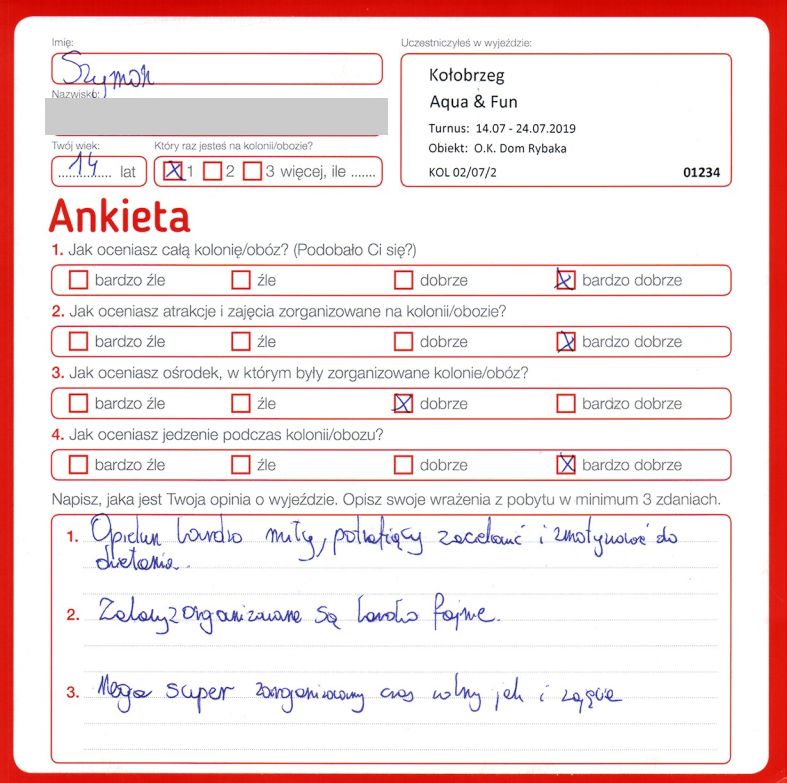 Imię:
Szymon
Nazwisko:
Twój wiek:
14 lat
Który raz jesteś na kolonii/obozie?
1 2 3 więcej, ile .......
Uczestniczyłeś w wyjeździe:
Kołobrzeg
Aqua & Fun
Turnus: 14.07 - 24.07.2019
Obiekt: O.K. Dom Rybaka
KOL 02/07/2 01234
Ankieta
1. Jak oceniasz całą kolonię/obóz? (Podobało Ci się?)
bardzo źle źle dobrze bardzo dobrze
2. Jak oceniasz atrakcje i zajęcia zorganizowane na kolonii/obozie?
bardzo źle źle dobrze bardzo dobrze
3. Jak oceniasz ośrodek, w którym były zorganizowane kolonie/obóz?
bardzo źle źle dobrze bardzo dobrze
4. Jak oceniasz jedzenie podczas kolonii/obozu?
bardzo źle źle dobrze bardzo dobrze
Napisz, jaka jest Twoja opinia o wyjeździe. Opisz swoje wrażenia z pobytu w minimum 3 zdaniach.
1. Opiekun bardzo miły, potrafiący zaciekawić i zmotywować do
działania.
2. zorganizowane są bardzo fajne.
3. Mega super zorganizowany czas wolny jak i zajęcia